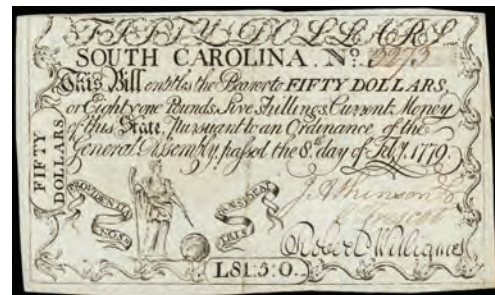 FIFTY DOLLARS.
SOUTH CAROLINA. No. 5273
This Bill entitles the Bearer to FIFTY DOLLARS,
or Eighty one Pounds, five shillings, Current Money
of this State, Pursuant to an Ordinance of the
General Assembly, passed the 8th. day of Feby. 1779.
FIFTY
DOLLARS
PROVIDENTIA
NOS
PRÆSIDEAT
J. Atkinson
Prescot
Robert Williams
L81:5:0.